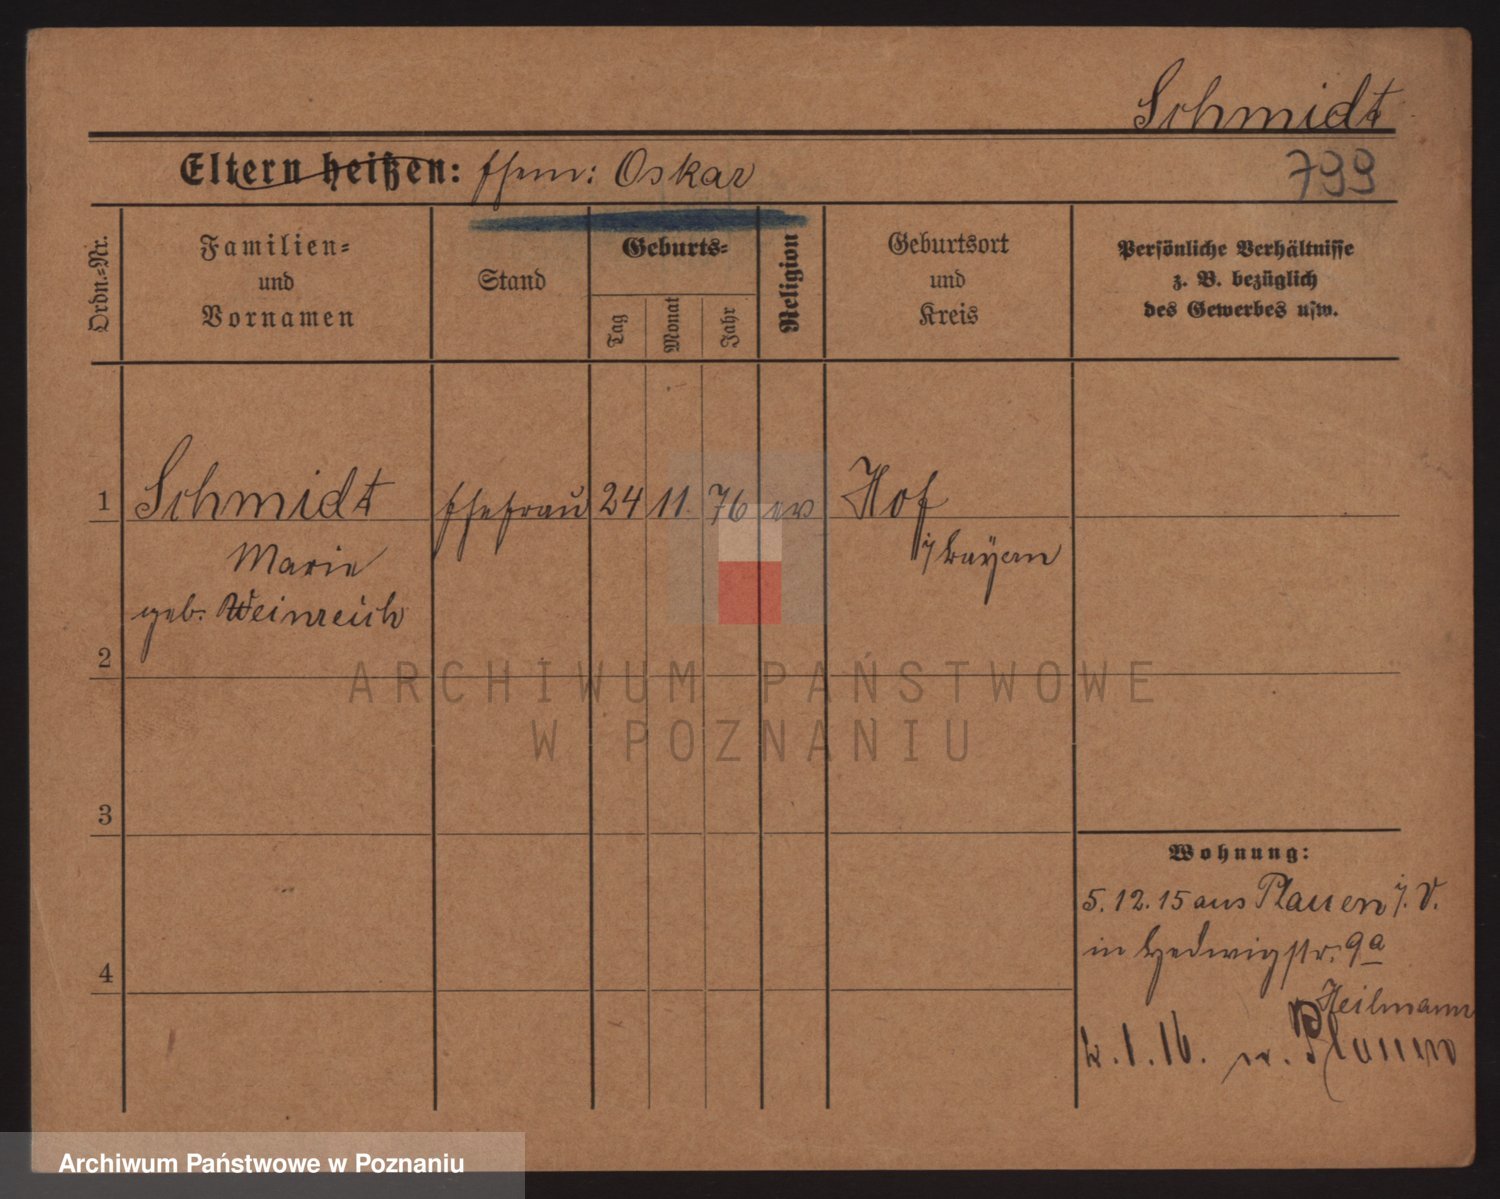 Schmidt
Eltern heißen: Ehem: Oskar
799
Ordn.-Nr.
Familien-
und
Vornamen
Stand
Geburts-
Tag
Monat
Jahr
Religion
Geburtsort
und
Kreis
Persönliche Verhältnisse
z. B. bezüglich
des Gewerbes usw.
1 Schmidt Ehefrau 24 11. 76 ev Hof
i/ Bayern
Marie
geb. Weinreich
2
3
4
Wohnung:
5. 12. 15 aus Plauen i. V.
in Hedwigstr. 9a
Heilmann
1. 16. n. Plauen
ARCHIWUM PAŃSTWOWE
W POZNANIU
Archiwum Państwowe w Poznaniu